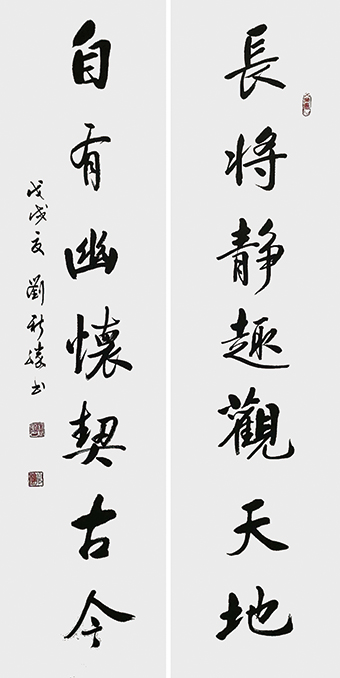 長將靜趣觀天地
自有幽懷契古今
戊戌夏劉新勝書